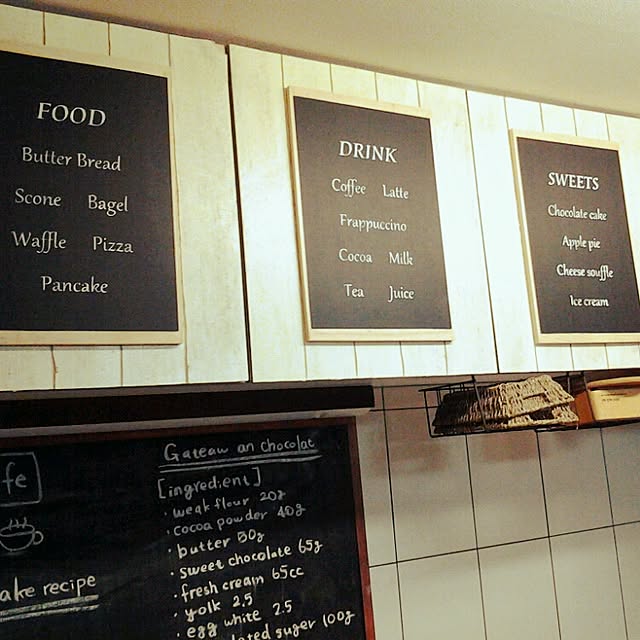 FOOD
Butter Bread
Scone Bagel
Waffle Pizza
Pancake
DRINK
Coffee Latte
Frappuccino
Cocoa Milk
Tea Juice
SWEETS
Chocolate cake
Apple pie
Cheese souffle
Ice cream
fe
ake recipe
Gateau an chocolat
[ingredient]
• weak flour 20g
• cocoa powder 40g
• butter 50g
• sweet chocolate 65g
• fresh cream 65cc
• yolk 2.5
• egg white 2.5
lated suger 100g